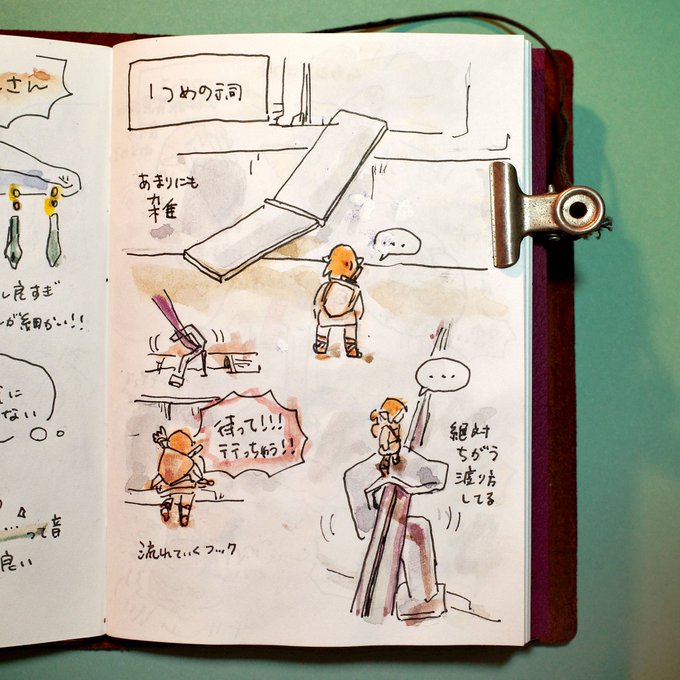 さん
し良すぎ
が細かい!!
に
ない
…って音
良い
1つめの祠
あまりにも
雑
...
待って!!!
行っちゃう!!
流れていくフック
...
絶対
ちがう
渡り方
してる